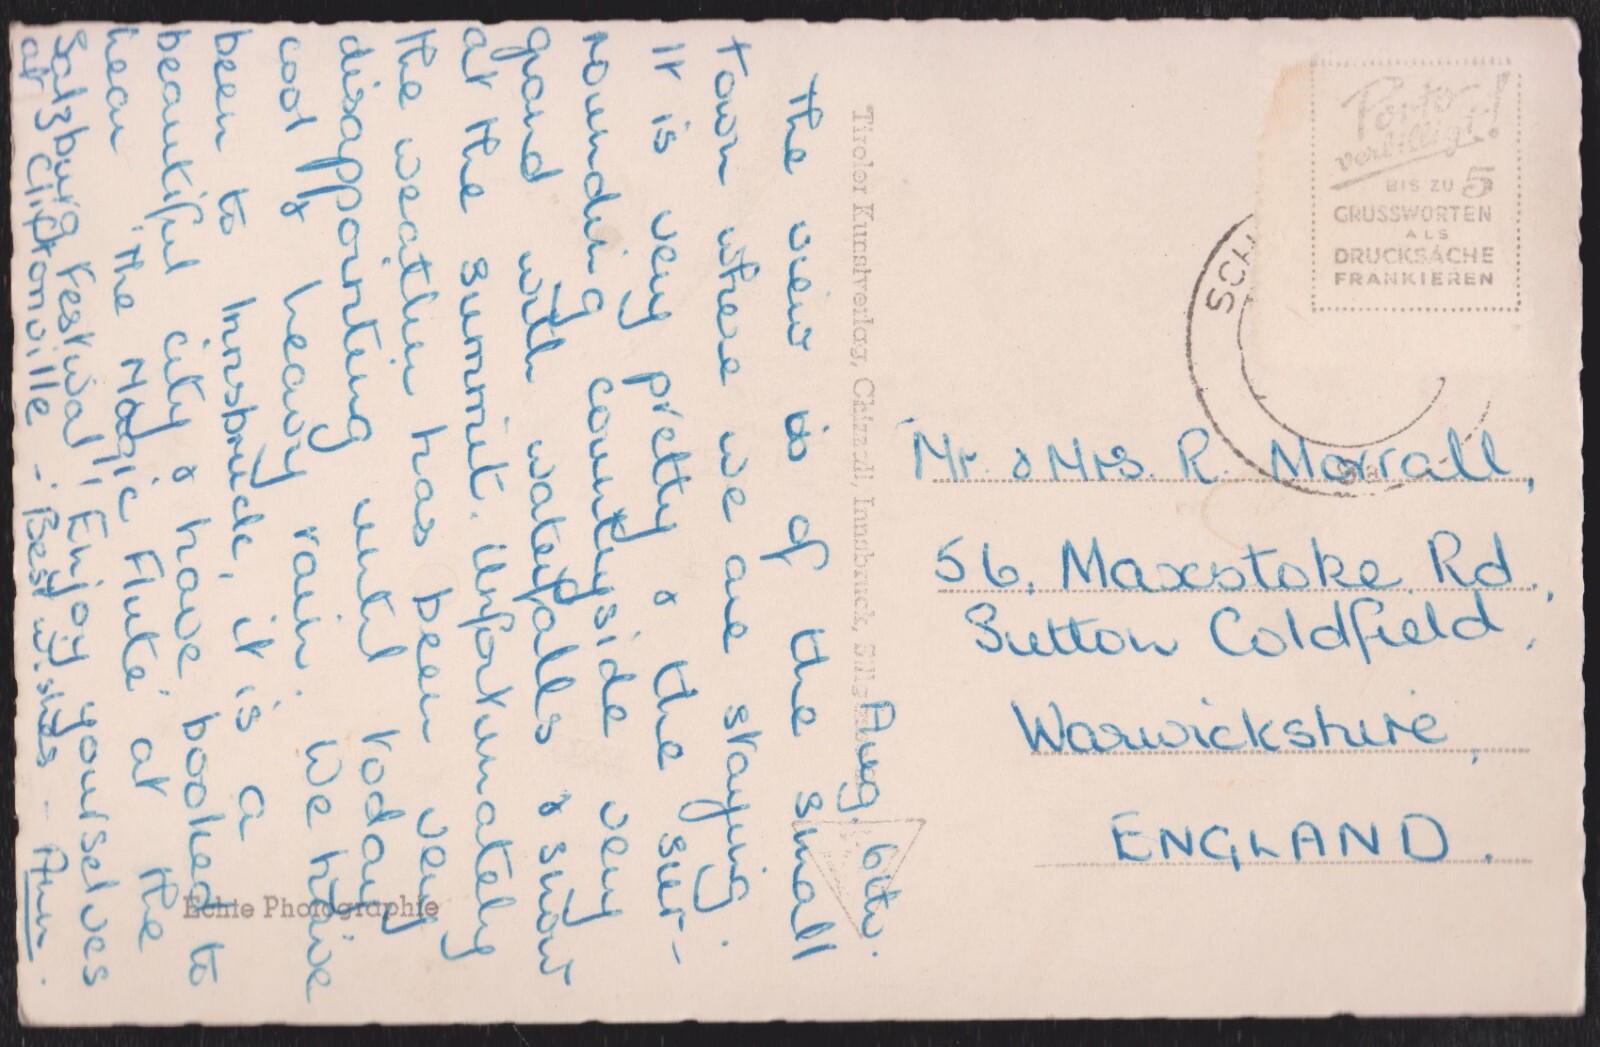 Aug. 6th.
The view is of the small
town where we are staying.
It is very pretty & the sur-
rounding countryside very
grand with waterfalls & snow
at the summit. Unfortunately
the weather has been very
disappointing until today
cool & heavy rain. We have
been to Innsbruck, it is a
beautiful city & have booked to
hear 'The Magic Flute' at the
Salzburg Festival! Enjoy yourselves
at Cliftonville - Best wishes - Ann.
Tiroler Kunstverlag, Chizzali, Innsbruck,
Echte Photographie
Porto
verbilligt!
BIS ZU 5
GRUSSWORTEN
ALS
DRUCKSACHE
FRANKIEREN
SCH
Mr. & Mrs. R. Morrall,
56, Maxstoke Rd.,
Sutton Coldfield,
Warwickshire,
ENGLAND.